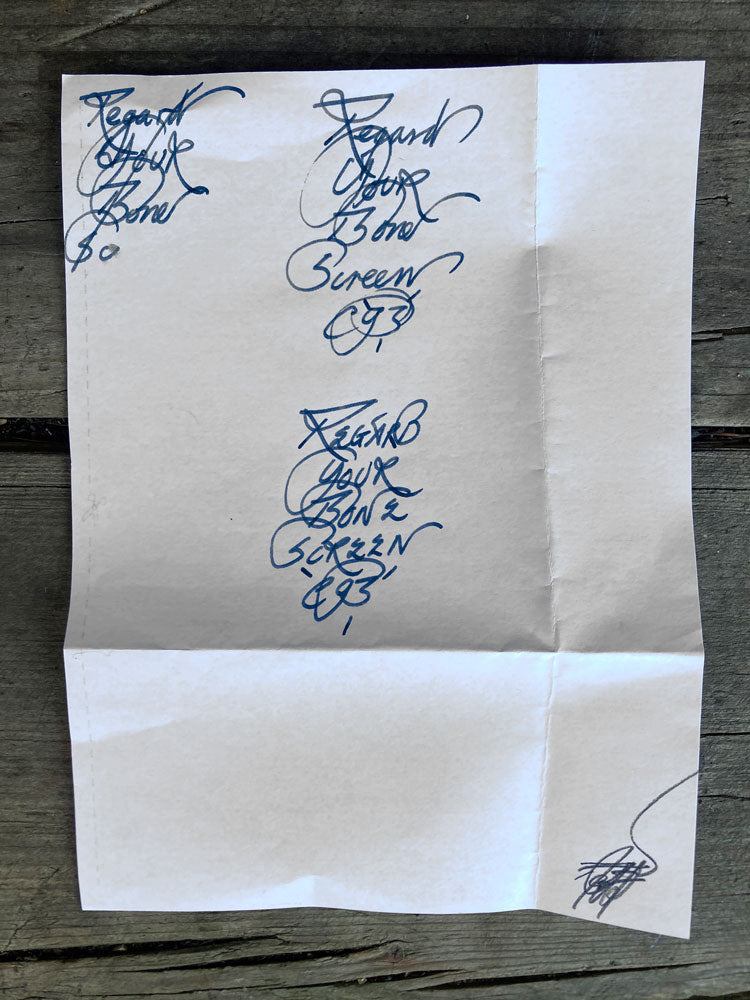 Regard
Your
Bone
Sc
Regard
Your
Bone
Screen
C93
REGARD
YOUR
BONE
SCREEN
C93